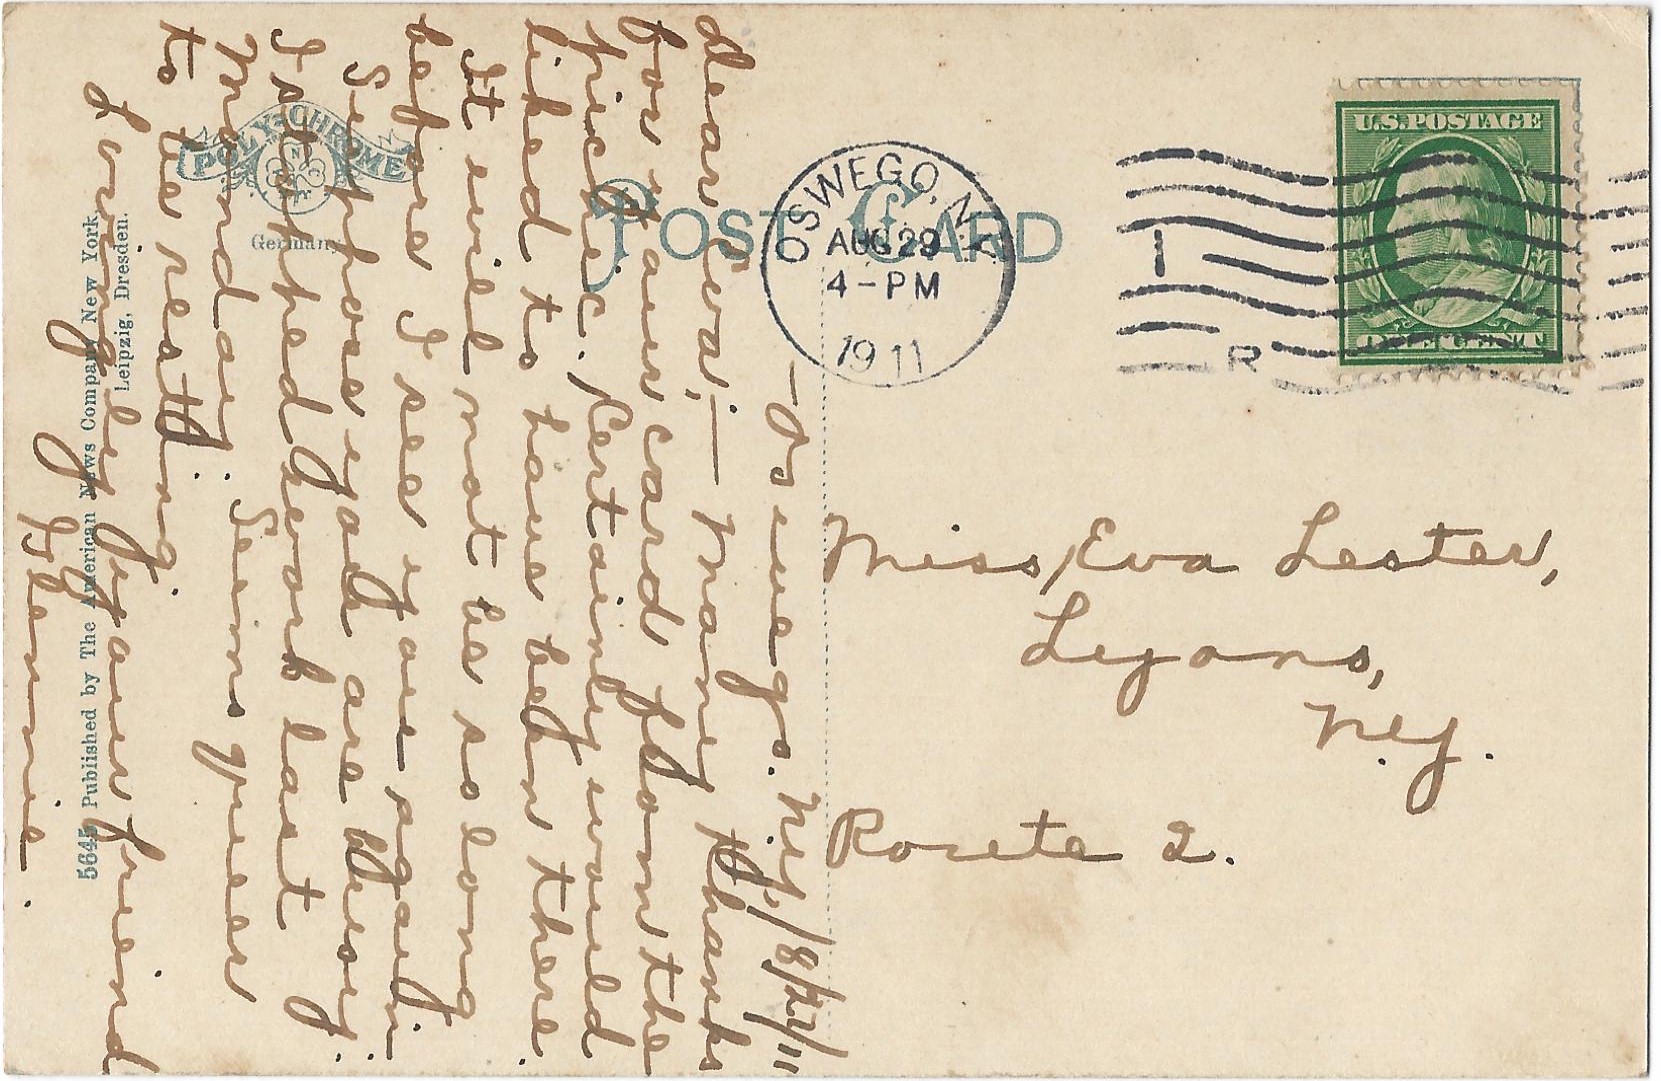 POST CARD
POLY-CHROME
Germany
5645 Published by The American News Company, New York,
Leipzig, Dresden.
OSWEGO, N.Y.
AUG 29
4-PM
1911
1
R
U.S.POSTAGE
Miss Eva Lester,
Lyons,
N.Y.
Route 2.
Oswego. N.Y. 8/27/11
Dear Eva;— Many thanks
for your card from the
picnic. Certainly would
liked to have been there.
It will not be so long
before I see you again.
Suppose you are busy.
I stopped work last
Monday. Seems queer
to be resting.
Lovingly your friend
Glennie.